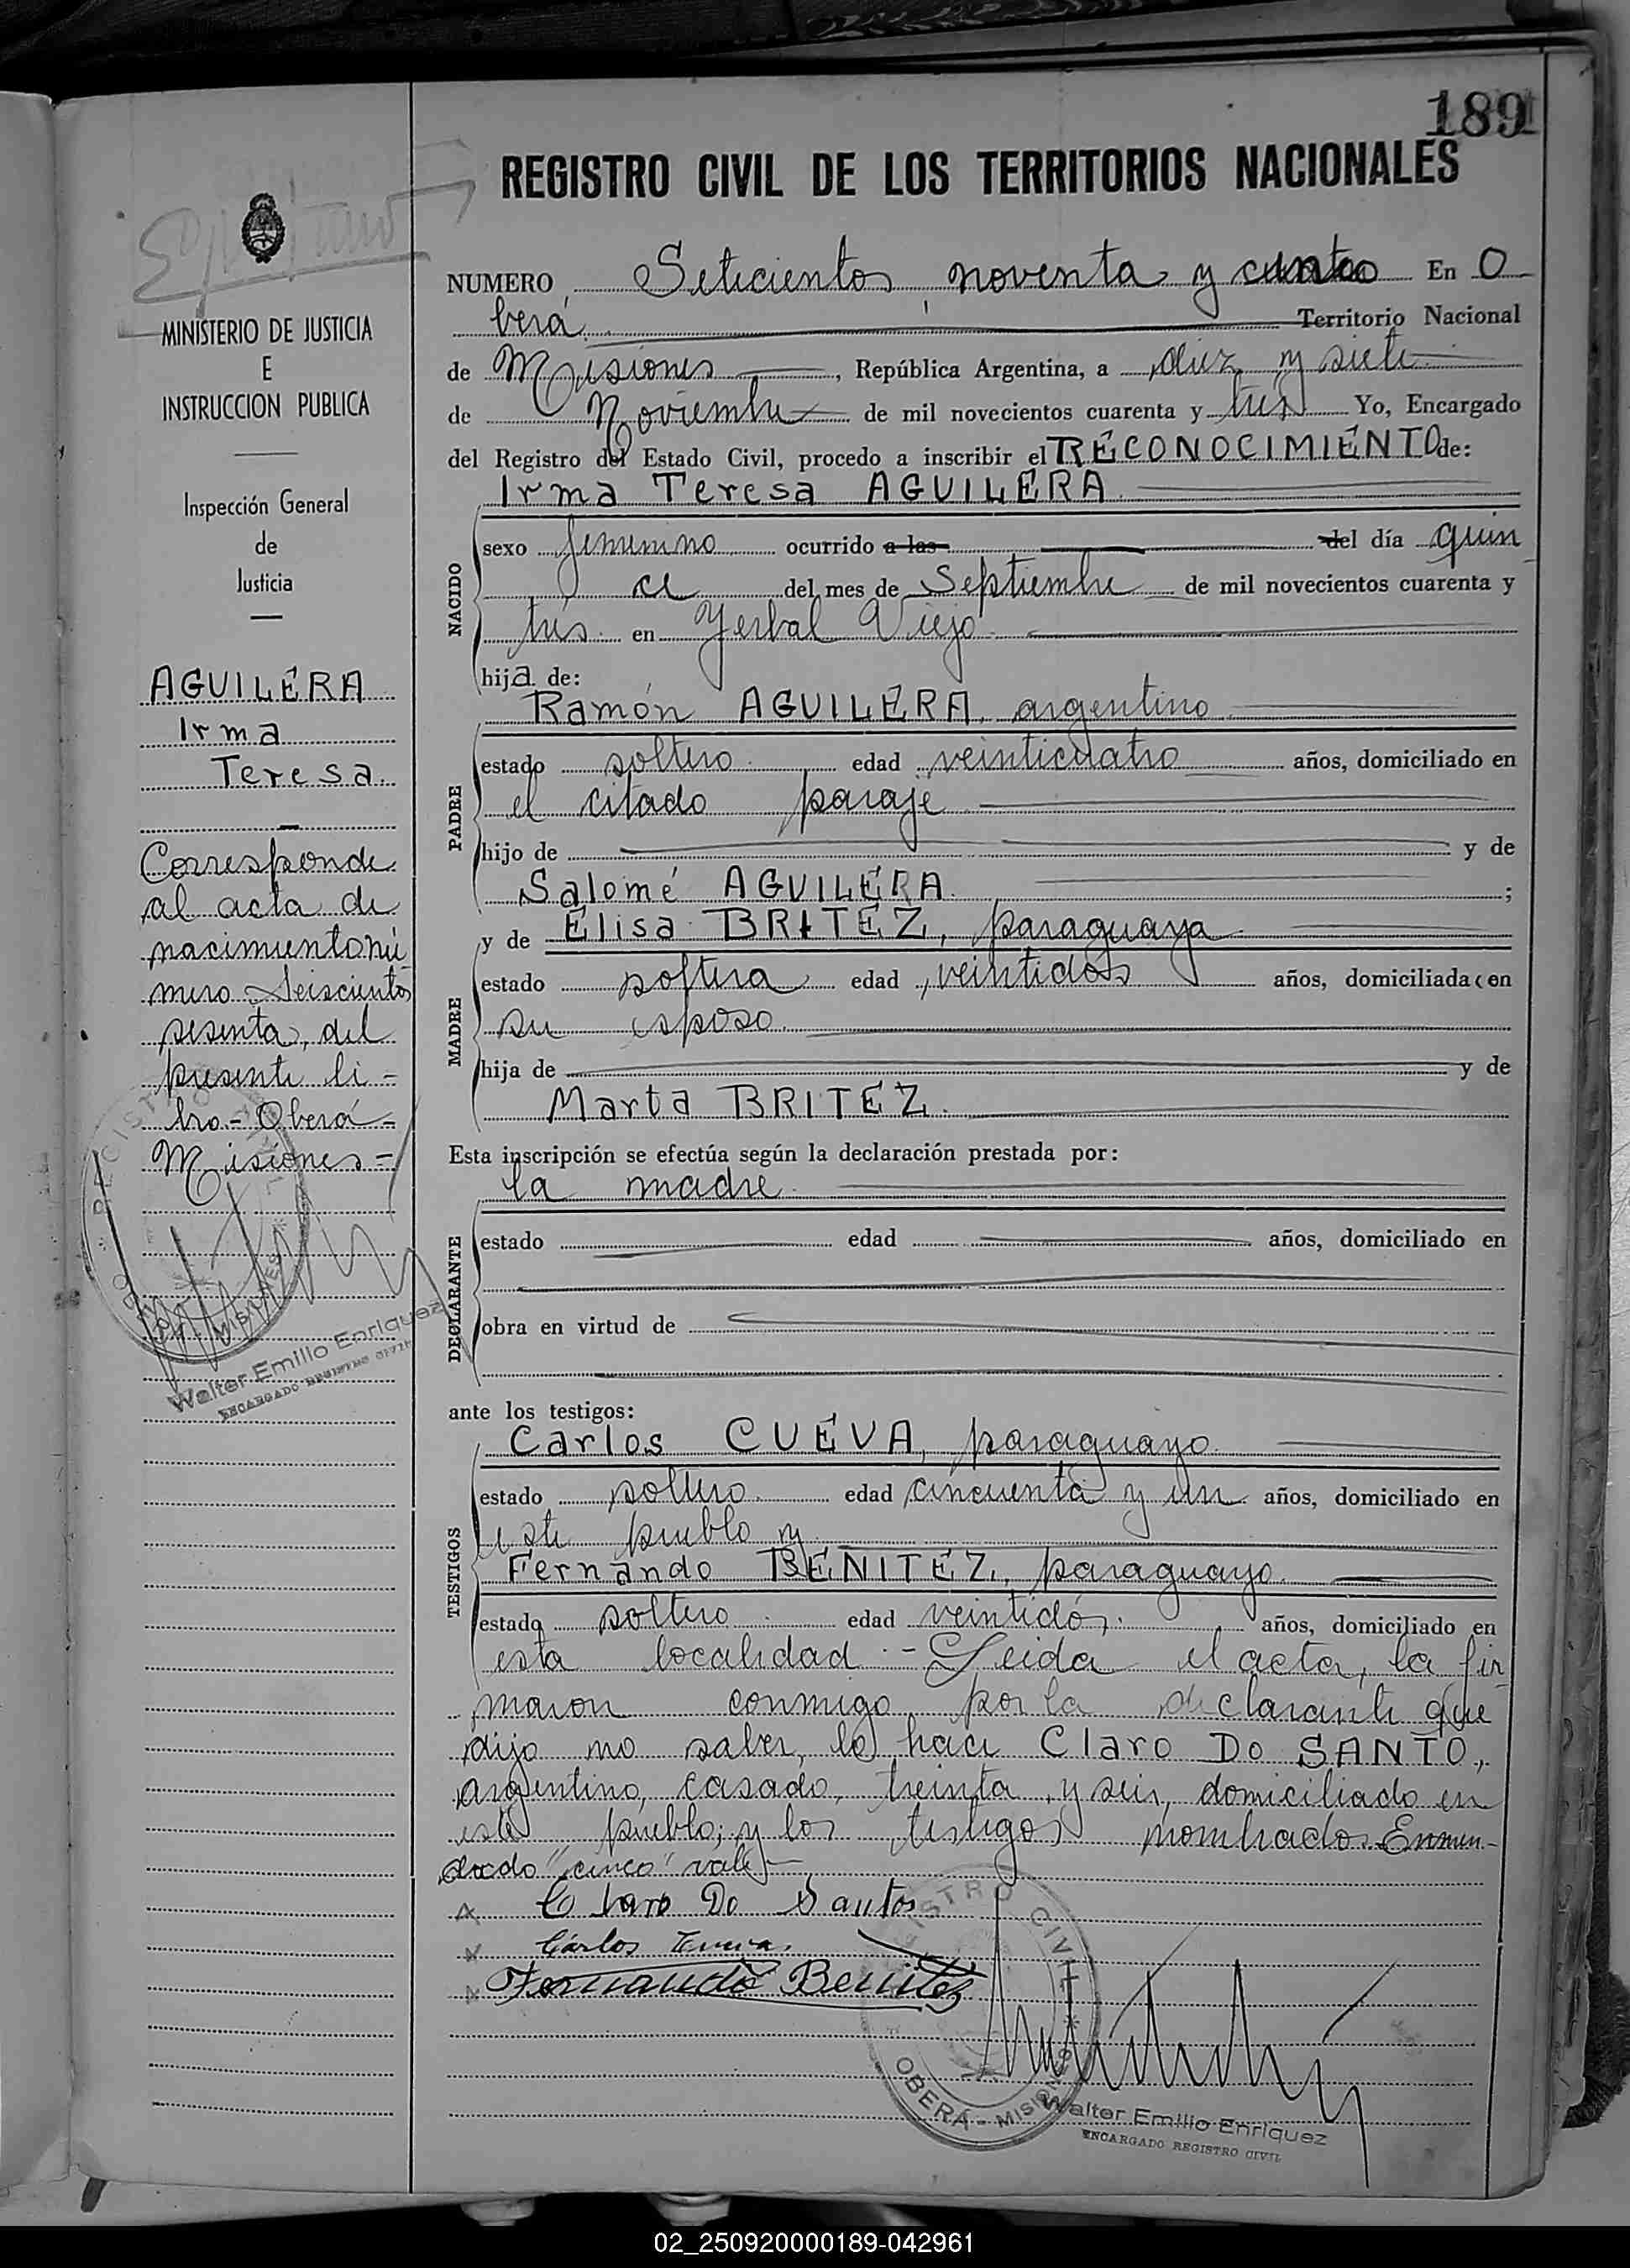 189
REGISTRO CIVIL DE LOS TERRITORIOS NACIONALES
MINISTERIO DE JUSTICIA
E
INSTRUCCION PUBLICA
Inspección General
de
Justicia
AGUILERA
Irma
Teresa.
Corresponde
al acta de
nacimiento nú
mero Seiscientos
sesenta, del
presente li-
bro - Oberá -
Misiones -
Walter Emilio Enriquez
ENCARGADO REGISTRO CIVIL
NUMERO Setecientos noventa y En O
berá Territorio Nacional
de Misiones, República Argentina, a diez y siete
de Noviembre de mil novecientos cuarenta y tres Yo, Encargado
del Registro del Estado Civil, procedo a inscribir el RECONOCIMIENTO de:
Irma Teresa AGUILERA.
NACIDO
sexo femenino ocurrido a las del día quin
ce del mes de Septiembre de mil novecientos cuarenta y
tres en Yerbal Viejo
hija de:
Ramón AGUILERA, argentino
PADRE
estado soltero edad veinticuatro años, domiciliado en
el citado paraje
hijo de y de
Salomé AGUILERA. ;
y de Elisa BRITEZ, paraguaya
MADRE
estado soltera edad veintidos años, domiciliada en
su esposo
hija de y de
Marta BRITEZ.
Esta inscripción se efectúa según la declaración prestada por:
la madre.
DECLARANTE
estado edad años, domiciliado en
obra en virtud de
ante los testigos:
Carlos CUEVA, paraguayo.
TESTIGOS
estado soltero edad cincuenta y un años, domiciliado en
este pueblo y
Fernando BENITEZ, paraguayo.
estado soltero edad veintidós años, domiciliado en
esta localidad - Leida el acta, la fir
maron conmigo por la declarante que
dijo no saber, lo hace Claro Do SANTO,
argentino, casado, treinta y seis, domiciliado en
este pueblo; y los testigos nombrados. Enmen-
dado "cinco" vale -
Claro Do Santos
Carlos Cueva.
Fernando Benitez
REGISTRO CIVIL
OBERÁ - MISIONES
Walter Emilio Enriquez
ENCARGADO REGISTRO CIVIL
02_250920000189-042961